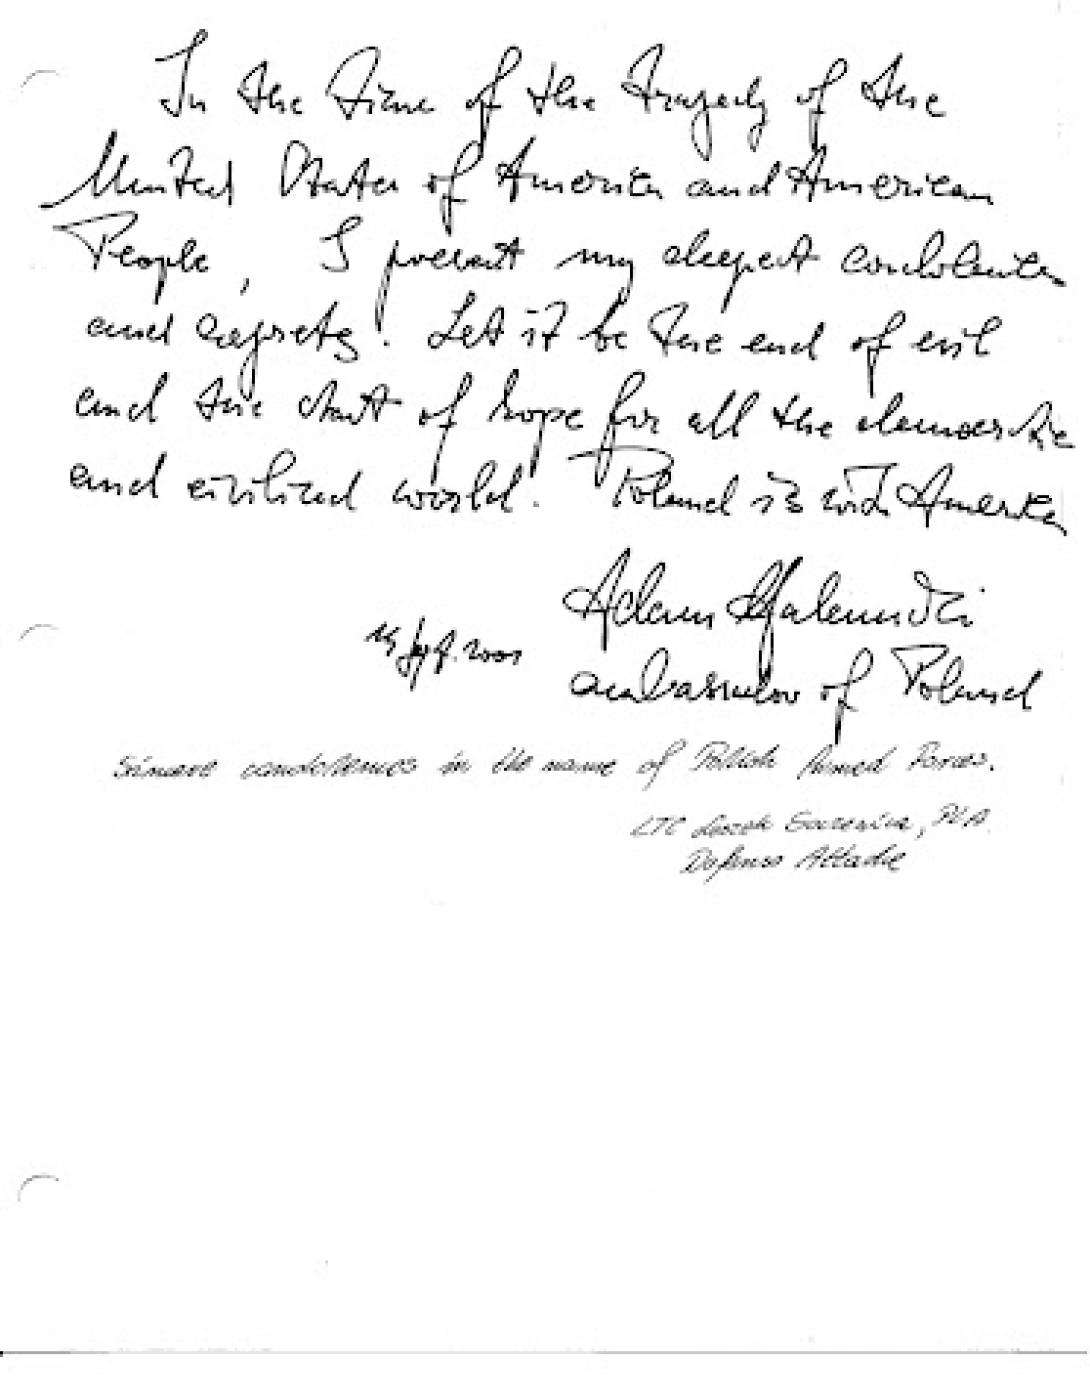 In the time of the tragedy of the
United States of America and American
People, I present my deepest condolences
and regrets. Let it be the end of evil
and the start of hope for all the democratic
and civilized world. Poland is with America
Adam
Sept. 2001
ambassador of Poland
Sincere condolences in the name of Polish Armed Forces.
LTC
Defense Attache